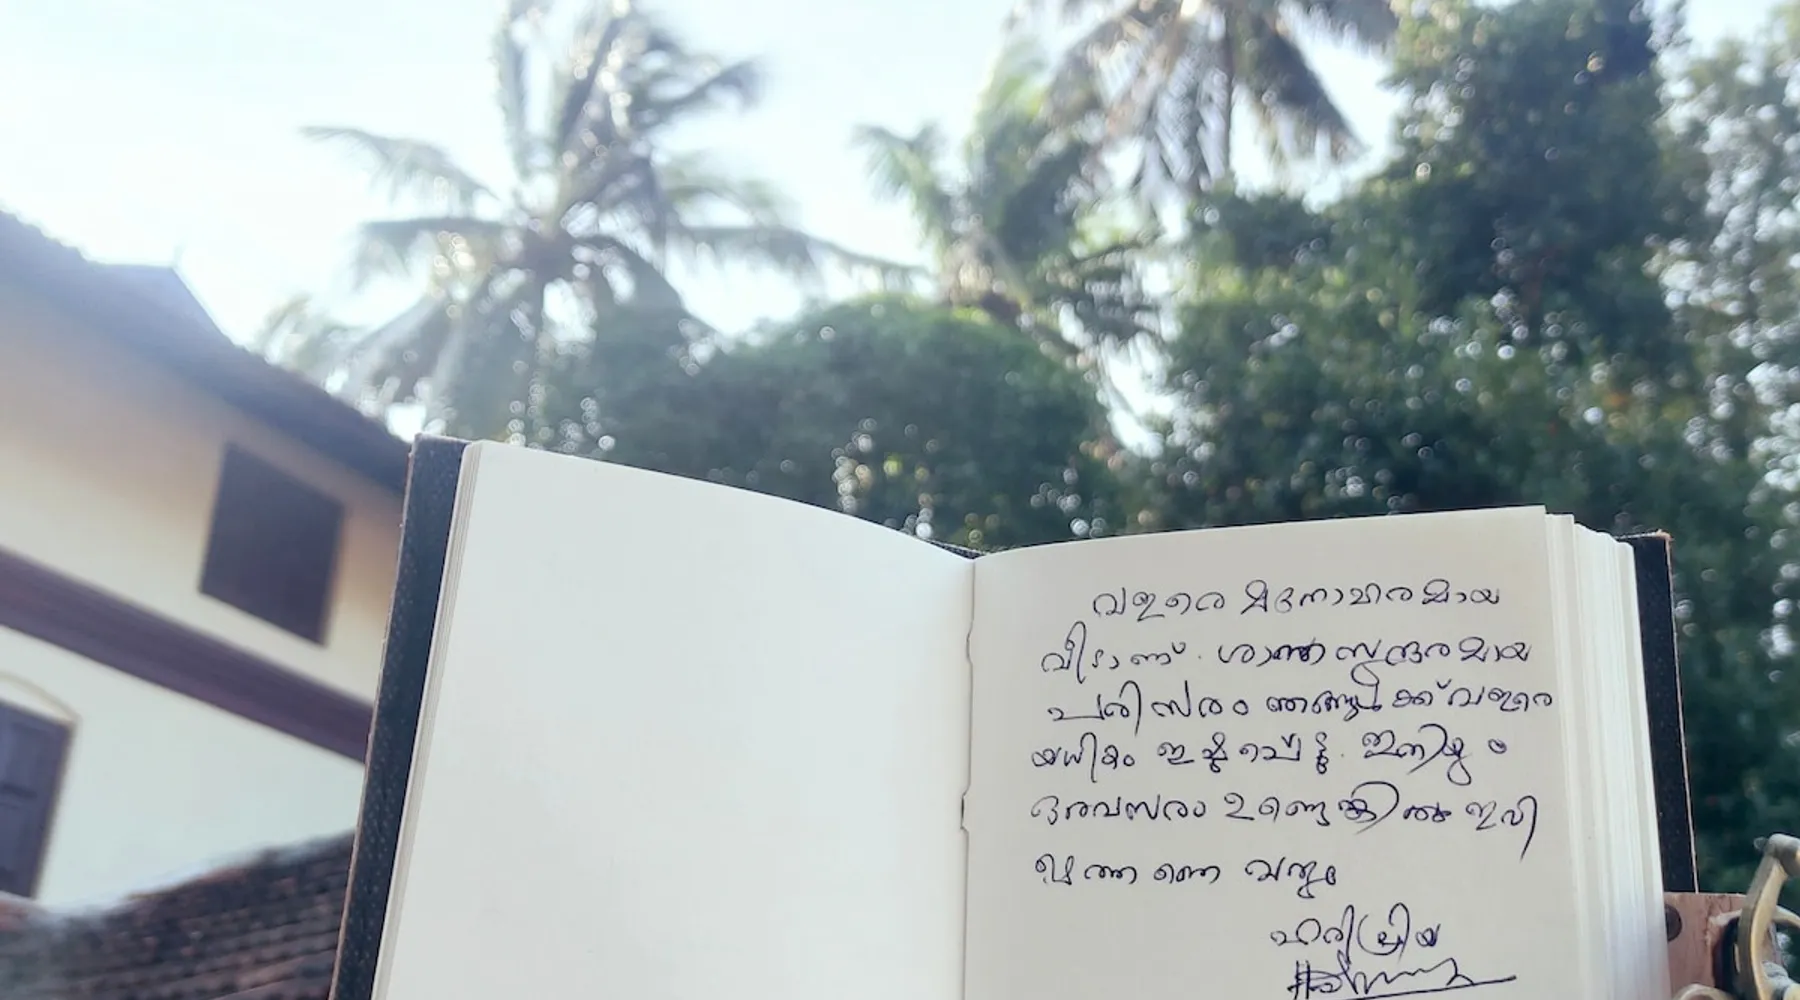 വളരെ മനോഹരമായ
വീടാണ്. ശാന്തസുന്ദരമായ
പരിസരം ഞങ്ങൾക്ക് വളരെ
യധികം ഇഷ്ടപ്പെട്ടു. ഇനിയും
ഒരവസരം ഉണ്ടെങ്കിൽ ഇവി
ടെ തന്നെ വരും
ഹരിപ്രിയ